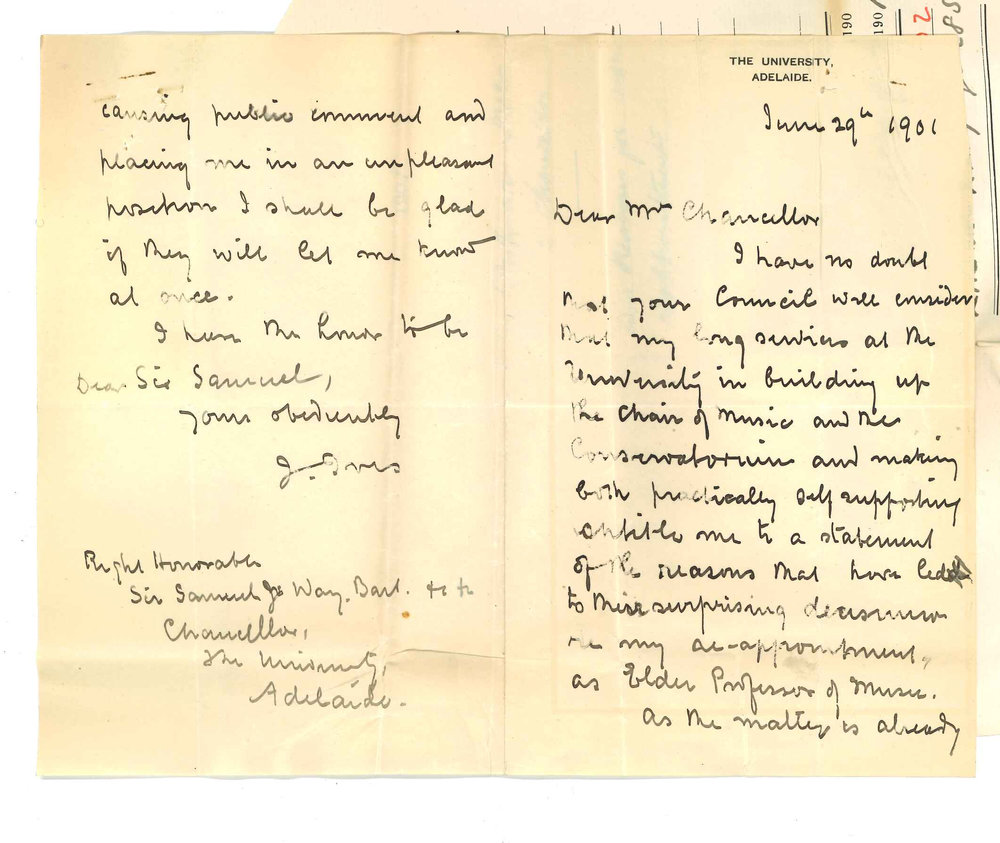 THE UNIVERSITY,
ADELAIDE.
June 29th 1901
Dear Mr Chancellor
I have no doubt
that your Council will consider
that my long services at the
University in building up
the Chair of Music and the
Conservatorium and making
both practically self supporting
entitle me to a statement
of the reasons that have led
to their surprising decision
re my re-appointment,
as Elder Professor of Music.
As the matter is already
causing public comment and
placing me in an unpleasant
position I shall be glad
if they will let me know
at once.
I have the honor to be
Dear Sir Samuel,
yours obediently
J. Ives
Right Honorable
Sir Samuel Js Way. Bart. &c &c
Chancellor,
The University,
Adelaide.
190
190